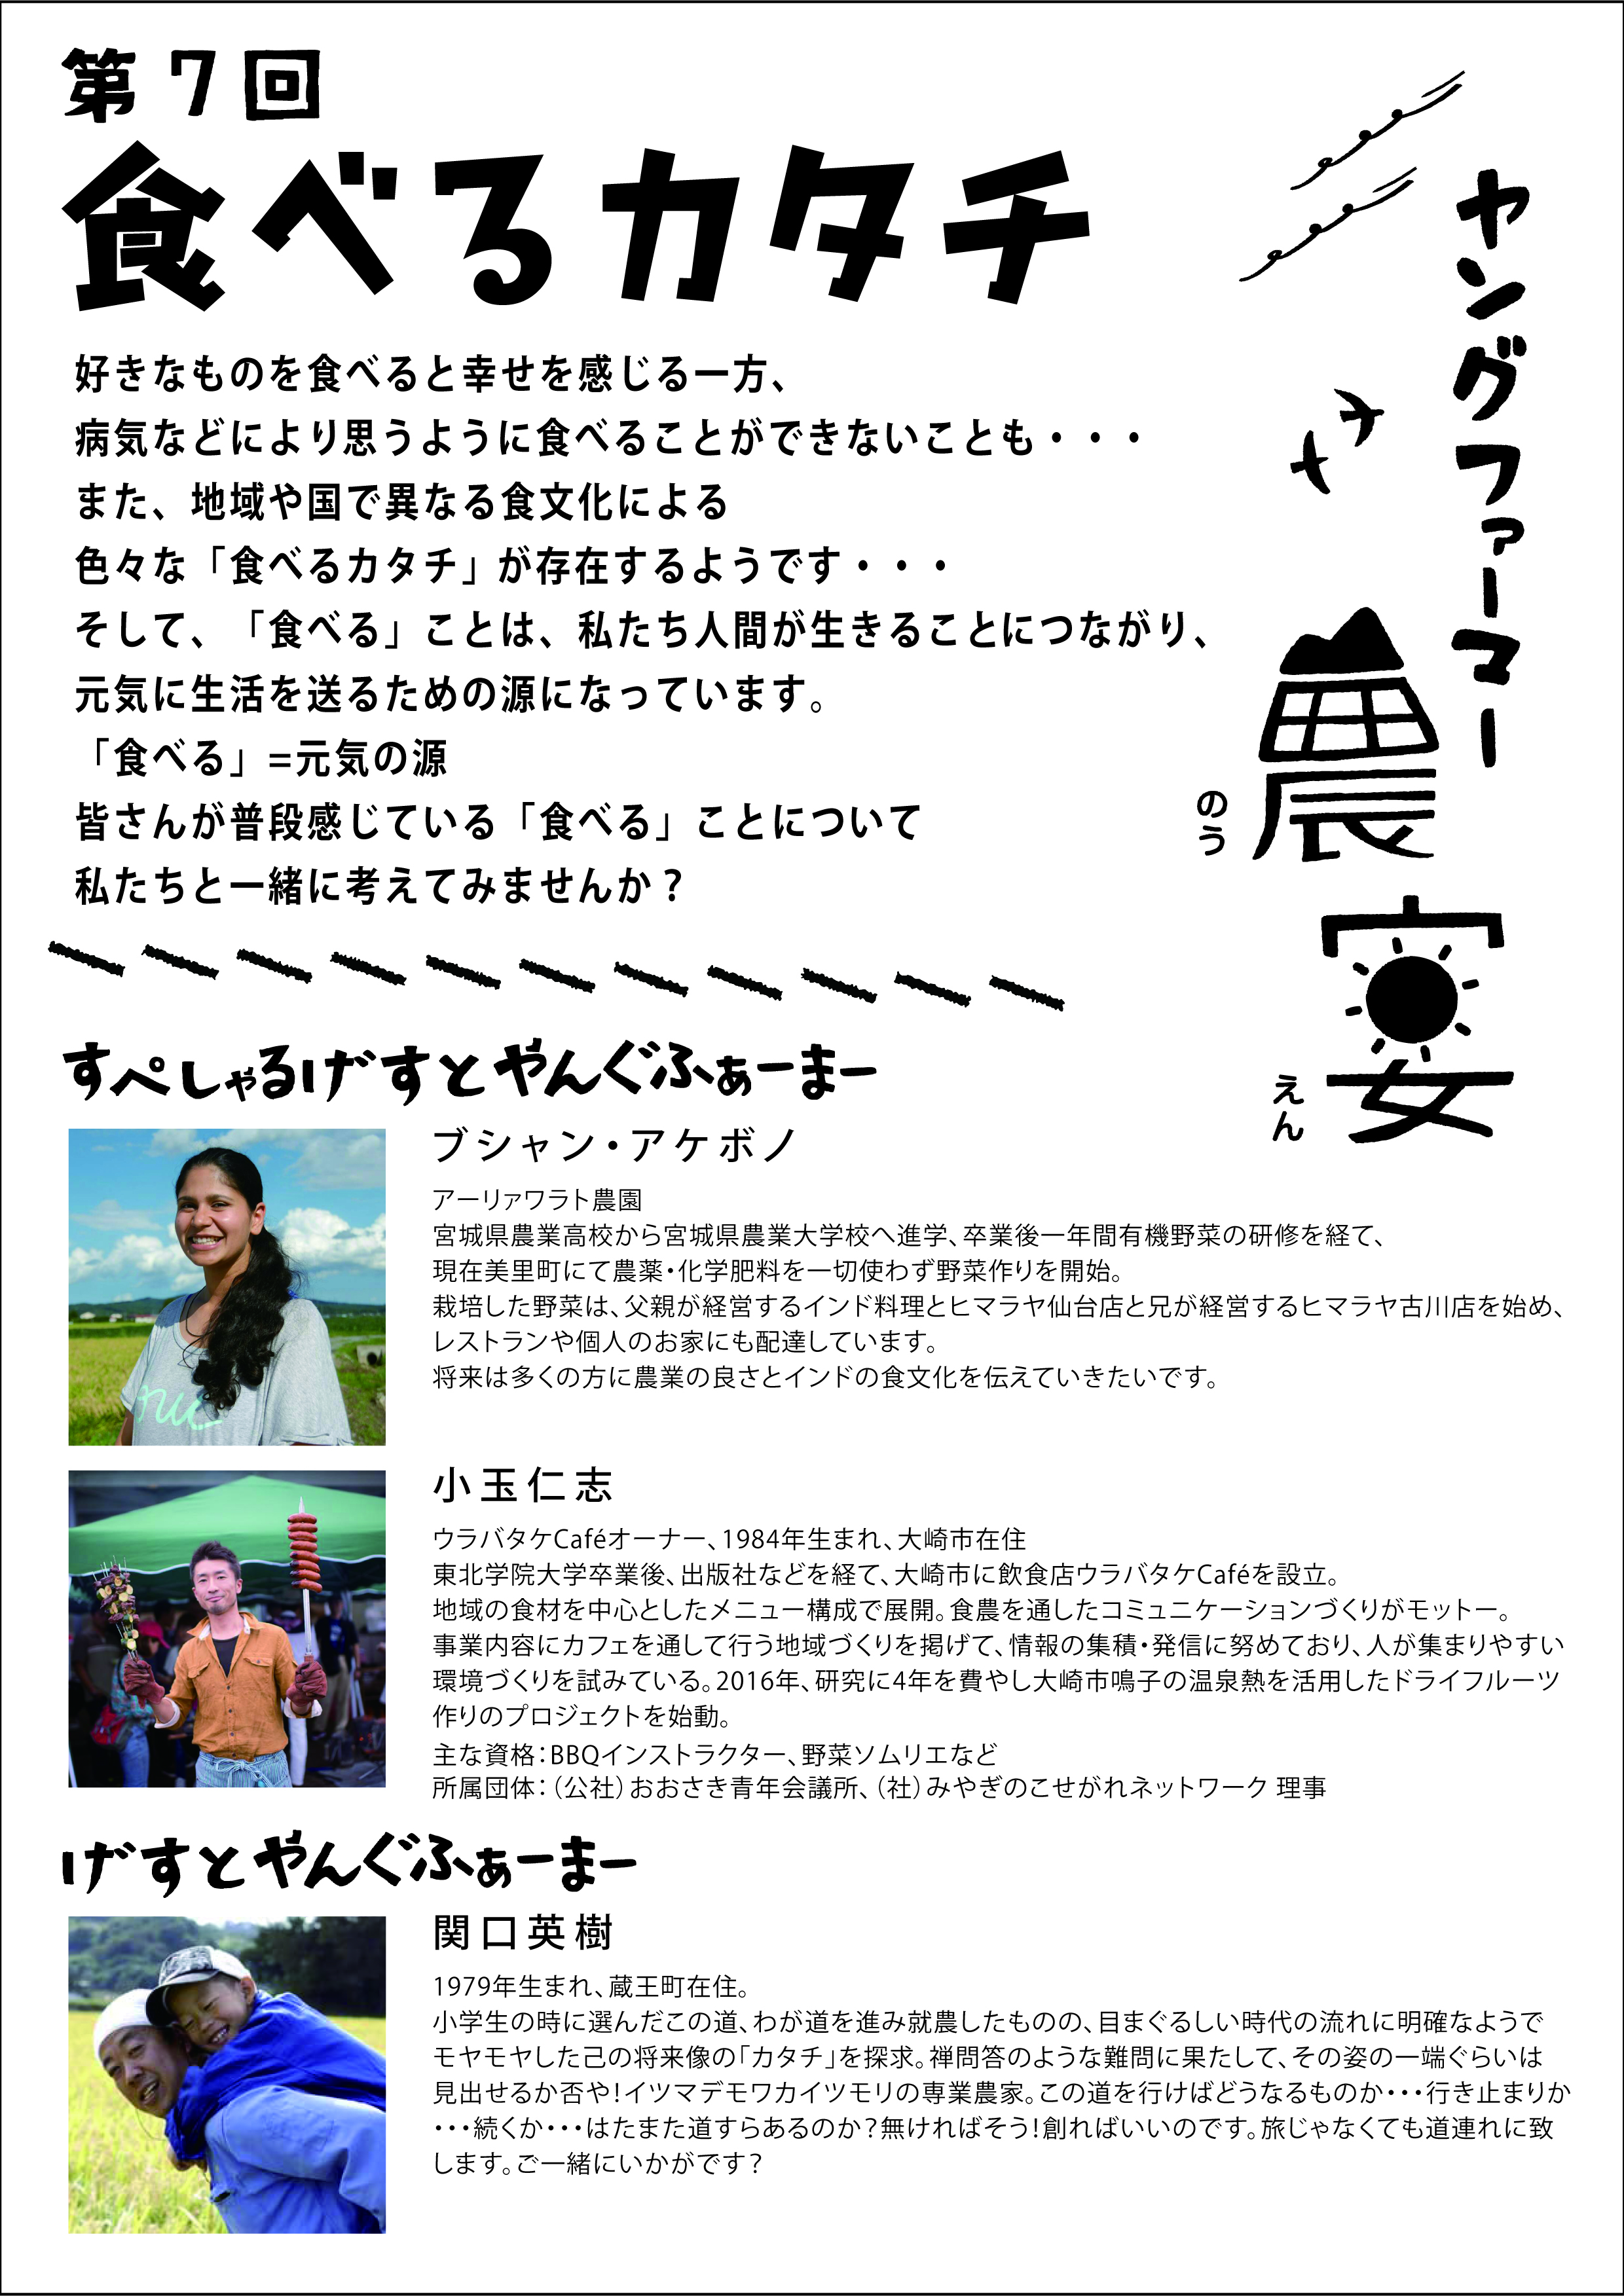 第7回
食べるカタチ
ヤングファーマー
農宴
のう
えん
好きなものを食べると幸せを感じる一方、
病気などにより思うように食べることができないことも・・・
また、地域や国で異なる食文化による
色々な「食べるカタチ」が存在するようです・・・
そして、「食べる」ことは、私たち人間が生きることにつながり、
元気に生活を送るための源になっています。
「食べる」=元気の源
皆さんが普段感じている「食べる」ことについて
私たちと一緒に考えてみませんか？
すぺしゃるげすとやんぐふぁーまー
ブシャン・アケボノ
アーリァワラト農園
宮城県農業高校から宮城県農業大学校へ進学、卒業後一年間有機野菜の研修を経て、
現在美里町にて農薬・化学肥料を一切使わず野菜作りを開始。
栽培した野菜は、父親が経営するインド料理とヒマラヤ仙台店と兄が経営するヒマラヤ古川店を始め、
レストランや個人のお家にも配達しています。
将来は多くの方に農業の良さとインドの食文化を伝えていきたいです。
小玉仁志
ウラバタケCaféオーナー、1984年生まれ、大崎市在住
東北学院大学卒業後、出版社などを経て、大崎市に飲食店ウラバタケCaféを設立。
地域の食材を中心としたメニュー構成で展開。食農を通したコミュニケーションづくりがモットー。
事業内容にカフェを通して行う地域づくりを掲げて、情報の集積・発信に努めており、人が集まりやすい
環境づくりを試みている。2016年、研究に4年を費やし大崎市鳴子の温泉熱を活用したドライフルーツ
作りのプロジェクトを始動。
主な資格：BBQインストラクター、野菜ソムリエなど
所属団体：（公社）おおさき青年会議所、（社）みやぎのこせがれネットワーク 理事
げすとやんぐふぁーまー
関口英樹
1979年生まれ、蔵王町在住。
小学生の時に選んだこの道、わが道を進み就農したものの、目まぐるしい時代の流れに明確なようで
モヤモヤした己の将来像の「カタチ」を探求。禅問答のような難問に果たして、その姿の一端ぐらいは
見出せるか否や！イツマデモワカイツモリの専業農家。この道を行けばどうなるものか・・・行き止まりか
・・・続くか・・・はたまた道すらあるのか？無ければそう！創ればいいのです。旅じゃなくても道連れに致
します。ご一緒にいかがです？